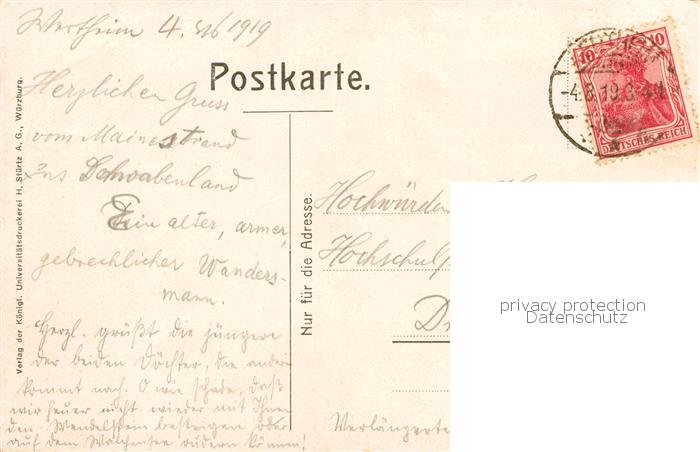 Wertheim 4. 1919
Postkarte.
Herzlichen Gruss
vom Mainestrand
ins Schwabenland
Ein alter, armer,
gebrechlicher Wanders-
mann.
Herzl. grüßt die jüngere
der beiden Töchter, die andere
kommt nach. O wie schade, daß
wir heuer nicht wieder mit Ihnen
den Wendelstein besteigen oder
auf dem Walchensee rudern können!
Verlag der Königl. Universitätsdruckerei H. Stürtz A. G., Würzburg.
Nur für die Adresse.
10 10
DEUTSCHES REICH
-4.8.19.
Hochwürden
Hochschul
D
Verlängerte
privacy protection
Datenschutz